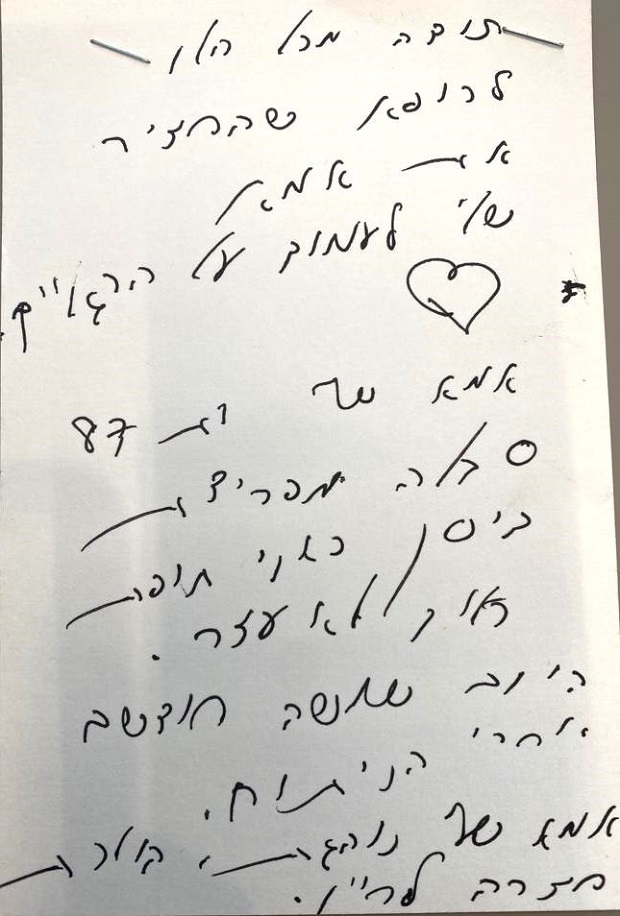 תודה מכל הלב
לרופא שהחזיר
את אמא
שלי לעמוד על הרגליים.
אמא שלי בת 87
סבלה מפריצת
דיסק כאבי תופת
לא עזר.
היום חודשים
אחרי הניתוח.
אמא שלי נוהגת, הולכת
חזרה לחיים.